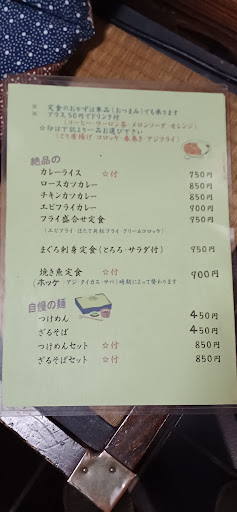 ※ 定食のおかずは単品(おつまみ)でも承ります
※ プラス50円でドリンク付
(コーヒー・ウーロン茶・メロンソーダ・オレンジ)
☆印は下記より一品お選び下さい
(とり唐揚げ・コロッケ・春巻き・アジフライ)
絶品の
カレーライス ☆付 750円
ロースカツカレー 850円
チキンカツカレー 850円
エビフライカレー 900円
フライ盛合せ定食 950円
(エビフライ・ほたて貝柱フライ・クリームコロッケ)
まぐろ刺身定食(とろろ・サラダ付) 950円
焼き魚定食 ☆付 900円
(ホッケ・アジ・タイカス・サバ)時期によって替わります
自慢の麺
つけめん 450円
ざるそば 450円
つけめんセット ☆付 850円
ざるそばセット ☆付 850円